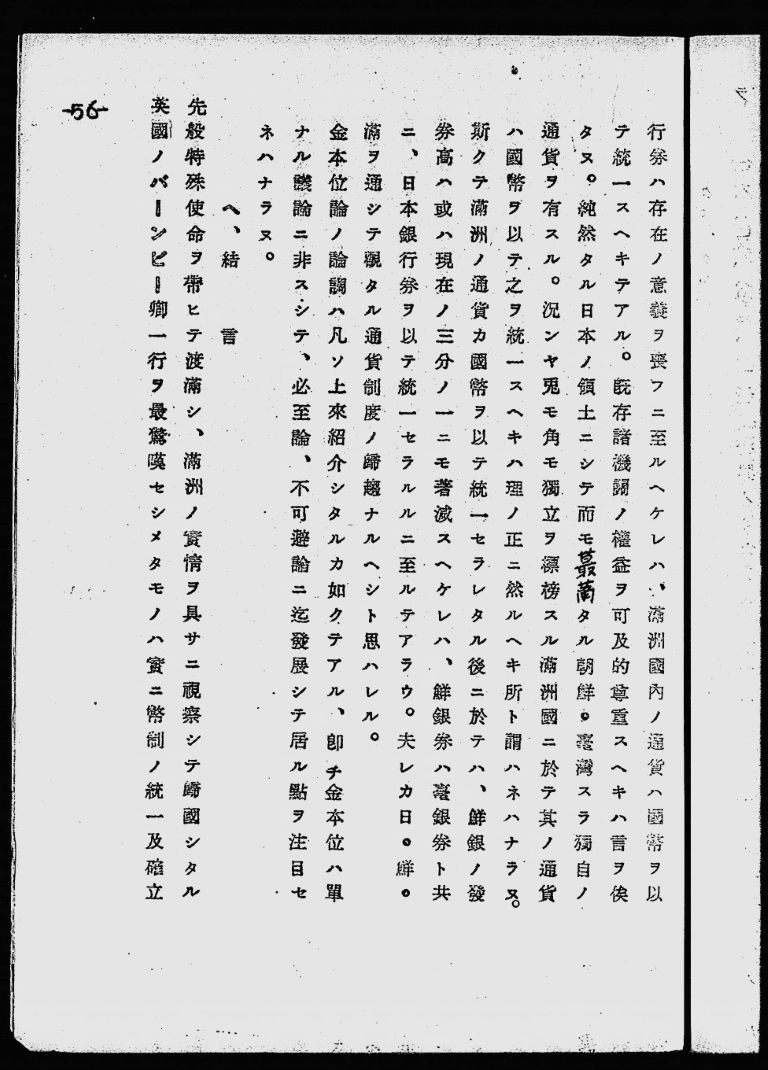 行券ハ存在ノ意義ヲ喪フニ至ルヘケレハ、滿洲國內ノ通貨ハ國幣ヲ以
テ統一スヘキテアル。既存諸機關ノ權益ヲ可及的尊重スヘキハ言ヲ俟
タヌ。純然タル日本ノ領土ニシテ而モ蕞薾タル朝鮮。臺灣スラ獨自ノ
通貨ヲ有スル。況ンヤ兎モ角モ獨立ヲ標榜スル滿洲國ニ於テ其ノ通貨
ハ國幣ヲ以テ之ヲ統一スヘキハ理ノ正ニ然ルヘキ所ト謂ハネハナラヌ。
斯クテ滿洲ノ通貨カ國幣ヲ以テ統一セラレタル後ニ於テハ、鮮銀ノ發
券高ハ或ハ現在ノ三分ノ一ニモ著減スヘケレハ、鮮銀券ハ臺銀券ト共
ニ、日本銀行券ヲ以テ統一セラルルニ至ルテアラウ。夫レカ日。鮮。
滿ヲ通シテ觀タル通貨制度ノ歸趨ナルヘシト思ハレル。
金本位論ノ論調ハ凡ソ上來紹介シタルカ如クテアル、卽チ金本位ハ單
ナル議論ニ非スシテ、必至論、不可避論ニ迄發展シテ居ル點ヲ注目セ
ネハナラヌ。
ヘ、結言
先般特殊使命ヲ帶ヒテ渡滿シ、滿洲ノ實情ヲ具サニ視察シテ歸國シタル
英國ノバーンビー卿一行ヲ最驚嘆セシメタモノハ實ニ幣制ノ統一及確立
-56-